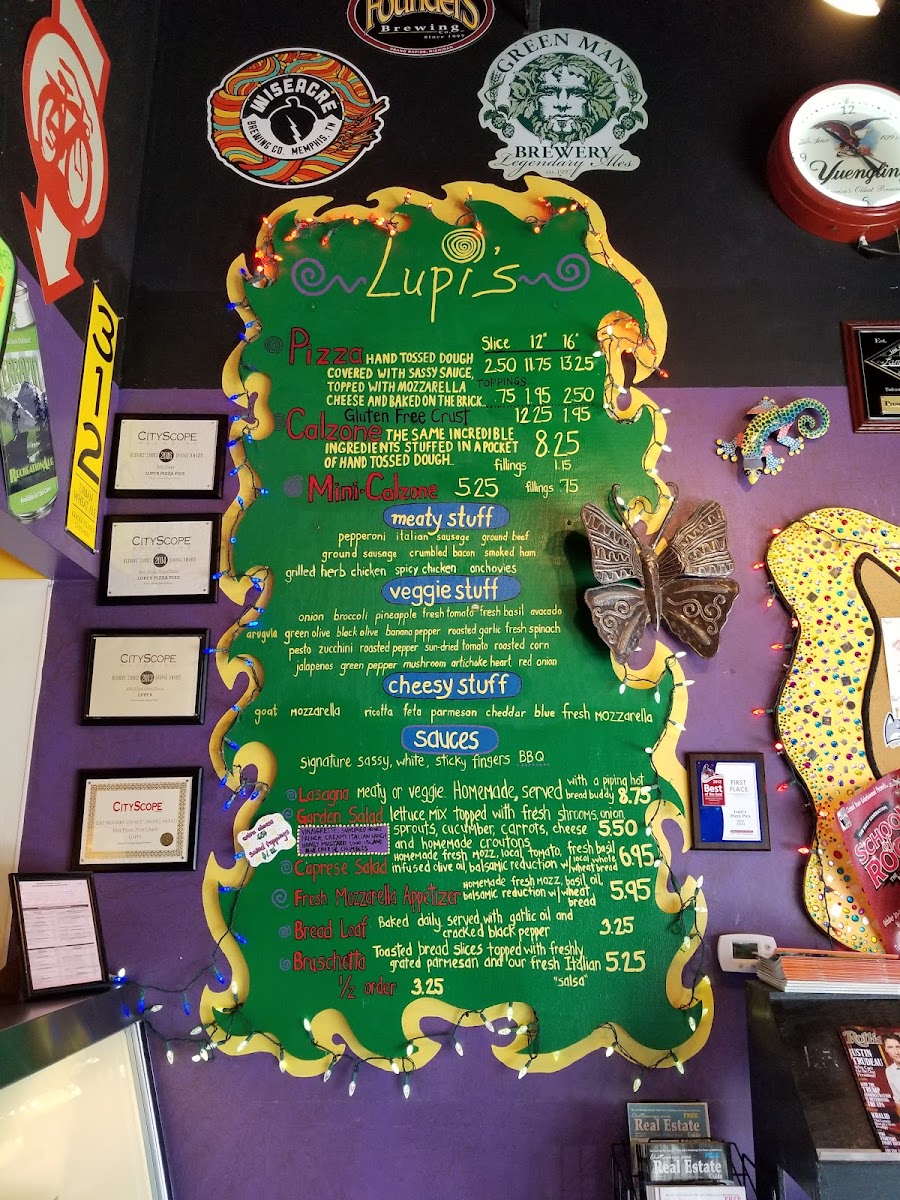 Founders
Brewing
Co.
Since 1997
WISEACRE
BREWING CO. MEMPHIS, TN
GREEN MAN
BREWERY
Legendary Ales
est. 1997
12
Yuengling
5
Lupi's
Pizza HAND TOSSED DOUGH
COVERED WITH SASSY SAUCE,
TOPPED WITH MOZZARELLA
CHEESE AND BAKED ON THE BRICK...
Slice 12" 16"
2.50 11.75 13.25
TOPPINGS
.75 1.95 2.50
Gluten Free Crust 12.25 1.95
Calzone THE SAME INCREDIBLE
INGREDIENTS STUFFED IN A POCKET
OF HAND TOSSED DOUGH...
8.25
fillings 1.15
Mini-Calzone 5.25 fillings .75
meaty stuff
pepperoni italian sausage ground beef
ground sausage crumbled bacon smoked ham
grilled herb chicken spicy chicken anchovies
veggie stuff
onion broccoli pineapple fresh tomato fresh basil avocado
arugula green olive black olive banana pepper roasted garlic fresh spinach
pesto zucchini roasted pepper sun-dried tomato roasted corn
jalapenos green pepper mushroom artichoke heart red onion
cheesy stuff
goat mozzarella ricotta feta parmesan cheddar blue fresh mozzarella
sauces
signature sassy, white, sticky fingers BBQ
Lasagna meaty or veggie. Homemade, served with a piping hot bread buddy 8.75
Garden Salad lettuce mix topped with fresh shrooms, onion,
sprouts, cucumber, carrots, cheese 5.50
and homemade croutons
Caprese Salad homemade fresh mozz, local tomato, fresh basil
infused olive oil, balsamic reduction w/ local whole wheat bread 6.95
Fresh Mozzarella Appetizer homemade fresh mozz, basil oil,
balsamic reduction w/ wheat bread 5.95
Bread Loaf Baked daily served with garlic oil and
cracked black pepper 3.25
Bruschetta Toasted bread slices topped with freshly
grated parmesan and our fresh Italian 5.25
"salsa"
1/2 order 3.25
CITYSCOPE
2014
CITYSCOPE
CITYSCOPE
2013
LUPI'S
CITYSCOPE
2012
Best
FIRST
PLACE
SCHOOL
of
ROCK
JUSTIN
TRUDEAU
KHALID
FREE
Real Estate
Real Estate